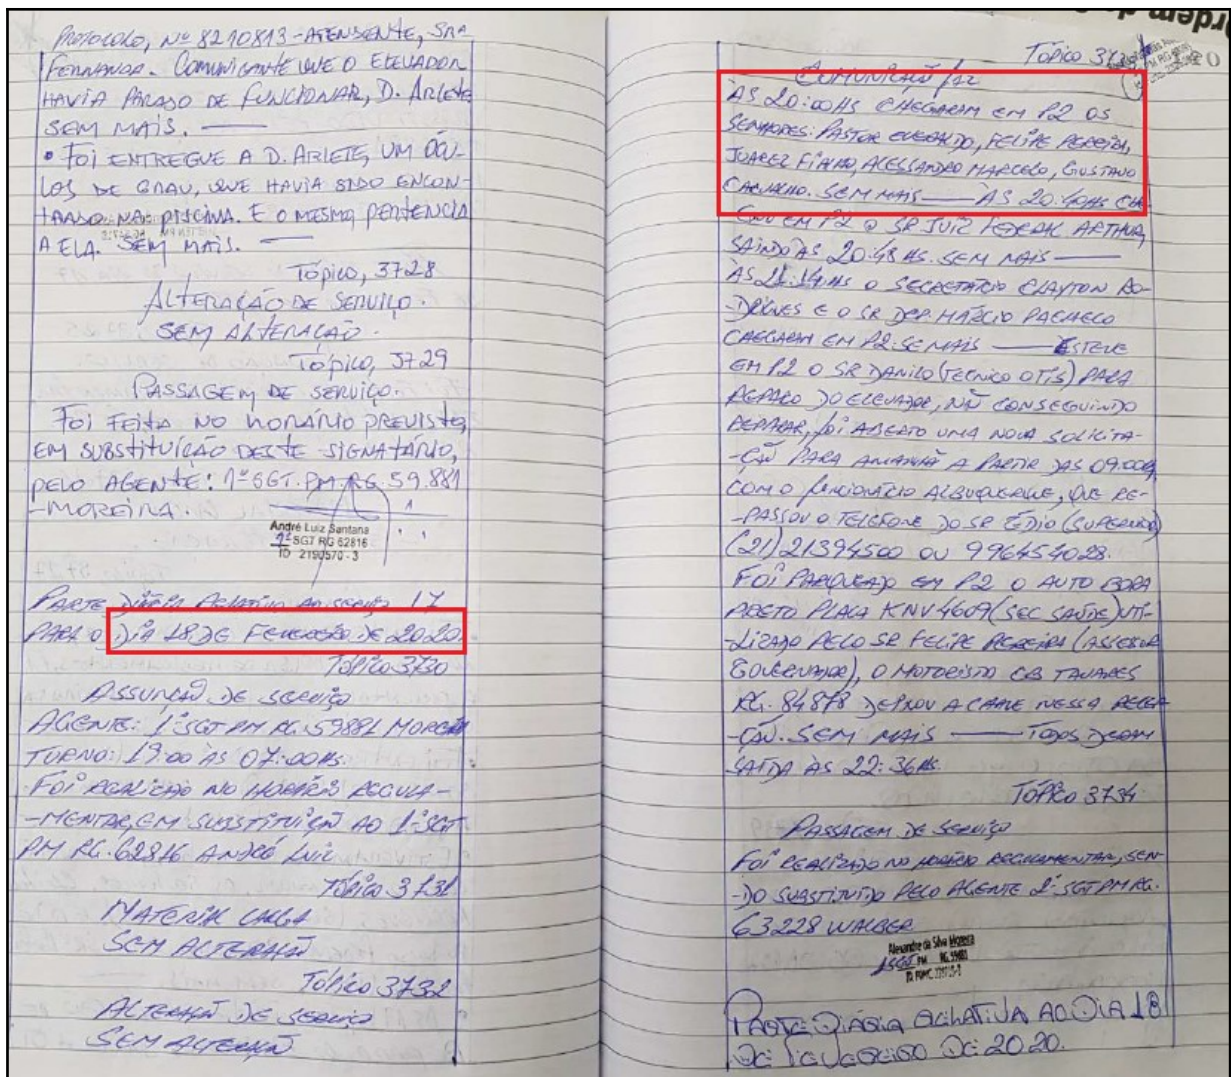 Protocolo, Nº 8210813 - ATENDENTE, SRA
FERNANDA. COMUNICANTE QUE O ELEVADOR
HAVIA PARADO DE FUNCIONAR, D. ARLETE
SEM MAIS. —
• FOI ENTREGUE A D. ARLETE, UM ÓCU-
LOS DE GRAU, QUE HAVIA SIDO ENCON-
TRADO NA PISCINA. E O MESMO PERTENCIA
A ELA. SEM MAIS. —
Tópico, 3728
ALTERAÇÃO DE SERVIÇO.
SEM ALTERAÇÃO.
Tópico, 3729
PASSAGEM DE SERVIÇO.
FOI FEITA NO HORÁRIO PREVISTO,
EM SUBSTITUIÇÃO DESTE SIGNATÁRIO,
PELO AGENTE: 1º SGT. PM RG. 59.881
- MOREIRA.
André Luiz Santana
1º SGT RG 62816
ID 2190570-3
PARTE DIÁRIA RELATIVA AO SERVIÇO 17
PARA O DIA 18 DE FEVEREIRO DE 2020.
Tópico 3730
ASSUNÇÃO DE SERVIÇO
AGENTE: 1º SGT PM RG. 59881 MOREIRA
TURNO: 19:00 ÀS 07:00HS.
FOI REALIZADO NO HORÁRIO REGULA-
-MENTAR, EM SUBSTITUIÇÃO AO 1º SGT
PM RG. 62816 ANDRÉ LUIZ
Tópico 3731
MATERIAL CARGA
SEM ALTERAÇÃO
Tópico 3732
ALTERAÇÃO DE SERVIÇO
SEM ALTERAÇÃO
Tópico
COMUNICAÇÃO
ÀS 20:00HS CHEGARAM EM P2 OS
SENHORES: PASTOR EVERALDO, FELIPE PEREIRA,
JUAREZ FIALHO, ALESSANDRO MARCELO, GUSTAVO
CARVALHO. SEM MAIS — ÀS 20:40HS CHE-
GOU EM P2 O SR JUIZ FEDERAL ARTHUR,
SAINDO ÀS 20:48 HS. SEM MAIS —
ÀS 21:14HS O SECRETÁRIO CLAYTON RO-
-DRIGUES E O SR DEP. MÁRCIO PACHECO
CHEGARAM EM P2. SE MAIS — ESTEVE
EM P2 O SR DANILO (TECNICO OTIS) PARA
REPARO DO ELEVADOR, NÃO CONSEGUINDO
REPARAR, FOI ABERTO UMA NOVA SOLICITA-
-ÇÃO PARA AMANHÃ A PARTIR DAS 09:00HS,
COM O FUNCIONÁRIO ALBUQUERQUE, QUE RE-
-PASSOU O TELEFONE DO SR ÉDIO (SUPERVISOR)
(21) 21394500 OU 996454028.
FOI PARQUEADO EM P2 O AUTO BORA
PRETO PLACA KNV4609 (SEC SAÚDE) UTI-
-LIZADO PELO SR FELIPE PEREIRA (ASSESSOR
GOVERNADOR), O MOTORISTA CB TAVARES
RG. 84878 DEIXOU A CHAVE NESSA RECEP-
-ÇÃO. SEM MAIS — TODOS DERAM
SAÍDA ÀS 22:36HS.
TÓPICO 3734
PASSAGEM DE SERVIÇO
FOI REALIZADO NO HORÁRIO REGULAMENTAR, SEN-
-DO SUBSTITUÍDO PELO AGENTE 2º SGT PM RG.
63228 WALBER
Alexandre da Silva Moreira
PARTE DIÁRIA RELATIVA AO DIA 18
DE FEVEREIRO DE 2020.